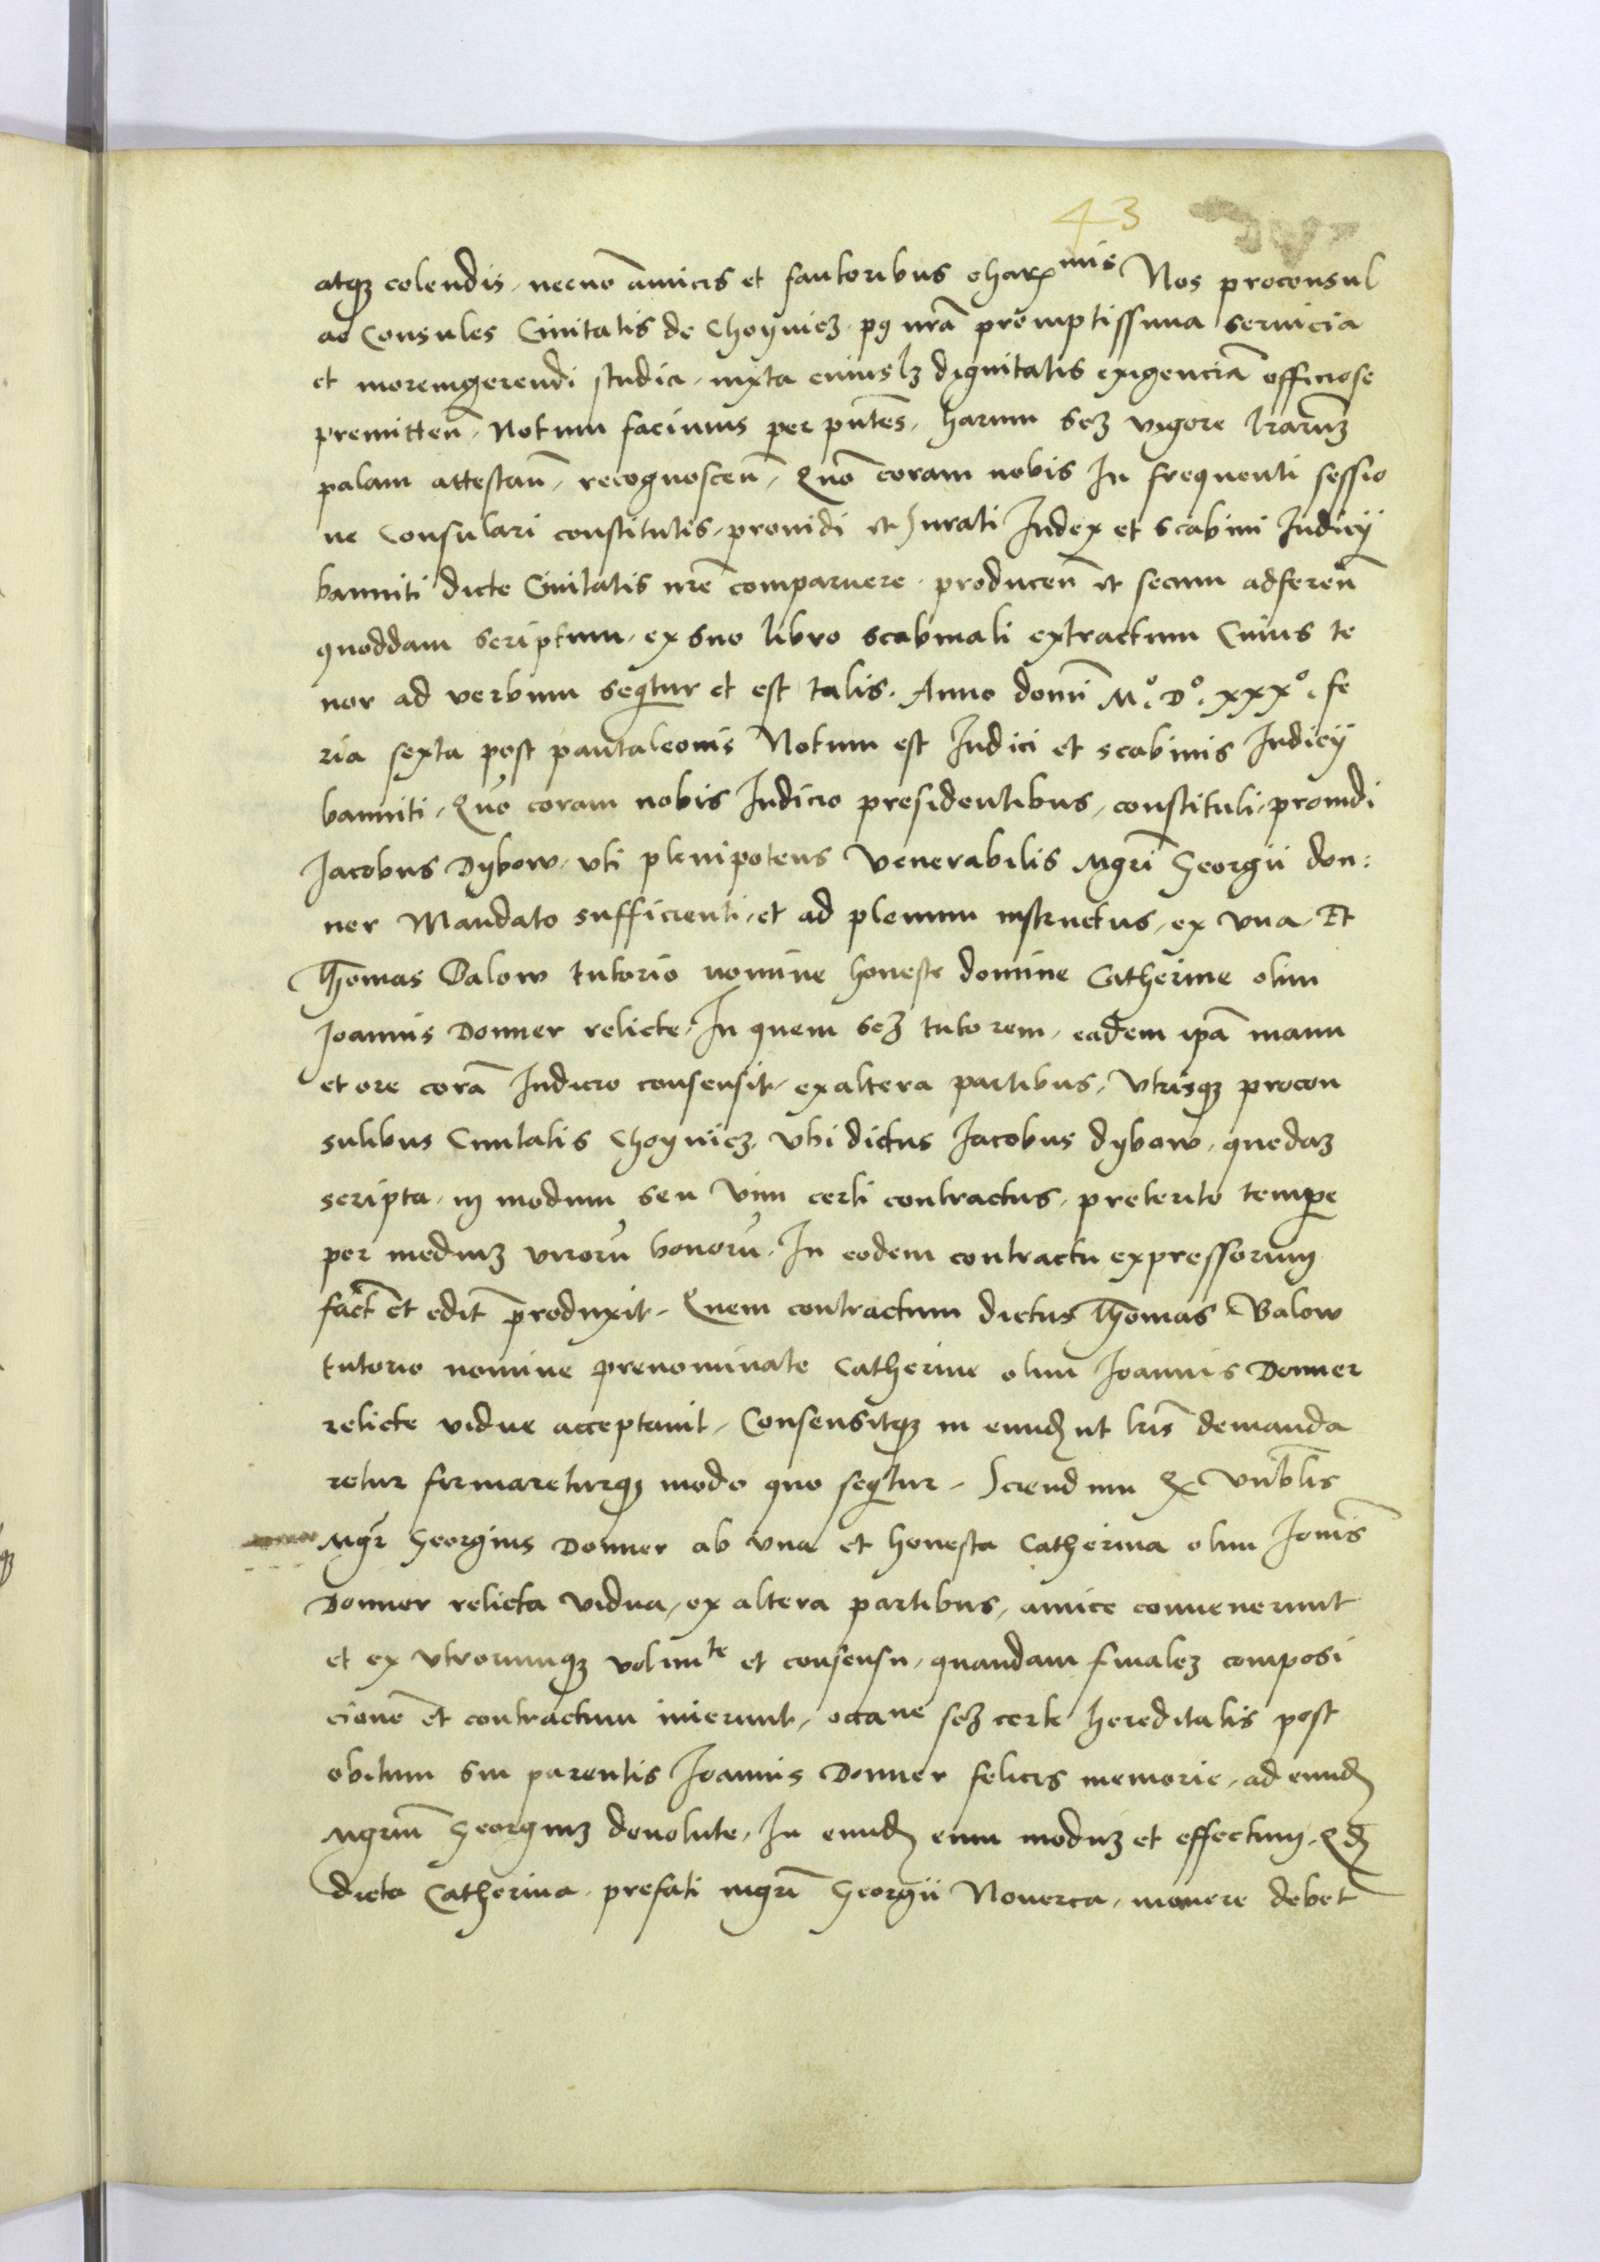 43
atqꝫ colendis, necno amicis et fautoribus charxmis Nos proconsul
ac Consules Civitatis de Choyniez, pꝰ nrā promptissima servicia
et moremgerendi studia, iuxta cuiuslꝫ dignitatis exigenciā officiose
premitten̄, Notum facimus per pn̄tes, harum scꝫ vigore lrarūꝫ
palam attestan̄, recognoscen̄, Quō coram nobis In frequenti sessio
ne Consulari constitutis, prouidi et Jurati Iudex et scabini Iudicij
banniti dicte Ciuitatis nrē comparuere, producen̄ et secum adferen̄
quoddam scriptum, ex suo libro scabinali extractum Cuius te
nor ad verbum seqͥtur et est talis. Anno domī M.º D.º xxxº. fe
ria sexta post pantaleonis Notum est Iudici et scabinis Iudicij
banniti, Quō coram nobis Iudicio presidentibus, constituti, prouidi
Jacobus Dybow, vti plenipotens Venerabilis Mgrī Georgii don:
ner Mandato sufficienti, et ad plenum instructus, ex vna, Et
Thomas Balow tutorio nomine honeste domine Catherine olim
Joannis Donner relicte, In quem scꝫ tutorem, eadem ipā manu
et ore corā Iudicio consensit, ex altera partibus, Vtrisqꝫ procon
sulibus Ciuitatis Choyniez, Vbi dictus Jacobus dybow, quedaꝫ
scripta, in modum seu Vim certi contractus, preterito tempe
per mediuꝫ virorū bonorū, In eodem contractu expressorum
fact̄ et edit̄ produxit, Quem contractum dictus Thomas Balow
tutorio nomine prenominate Catherine olim Joannis Donner
relicte vidue acceptauit, Consensitqꝫ in eundꝫ ut lris̄ demanda
retur firmareturqꝫ modo quo seqͥtur, Sciendum Qꝫ Vn̄blis
Mgr̄ Georgius Donner ab vna et honesta Catherina olim Joan̄is
Donner relicta vidua, ex altera partibus, amice conuenerunt
et ex vtrorumqꝫ volunte et consensu, quandam finaleꝫ composi
cionē et contractum inierunt, occane scꝫ certe hereditatis post
obitum sui parentis Joannis Donner felicis memorie, ad eundꝫ
Mgrum̄ Georgiuꝫ deuolute, In eundꝫ eum moduꝫ et effectum, Qdꝫ
dicta Catherina, prefati mgrī Georgii Nouerca, mouere debet